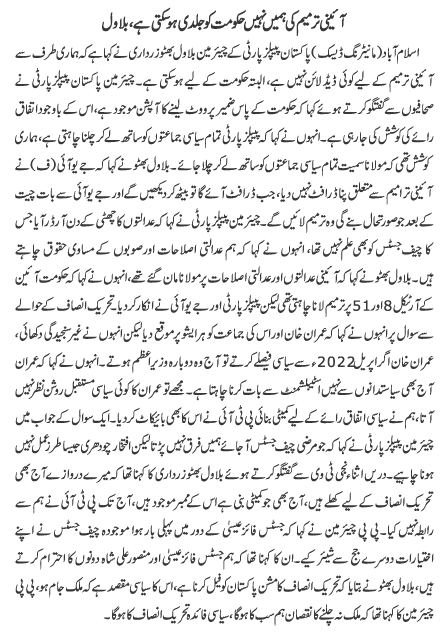 آئینی ترمیم کی ہمیں نہیں حکومت کو جلدی ہوسکتی ہے، بلاول
اسلام آباد (مانیٹرنگ ڈیسک) پاکستان پیپلز پارٹی کے چیئرمین بلاول بھٹو زرداری نے کہا ہے کہ ہماری طرف سے
آئینی ترمیم کے لیے کوئی ڈیڈ لائن نہیں ہے، البتہ حکومت کے لیے ہوسکتی ہے۔ چیئرمین پیپلز پارٹی نے
صحافیوں سے گفتگو کرتے ہوئے کہا کہ حکومت کے پاس ضمیر پر ووٹ لینے کا آپشن موجود ہے، اس کے باوجود اتفاق
رائے کی کوشش کی جارہی ہے۔ انہوں نے کہا کہ پیپلز پارٹی تمام سیاسی جماعتوں کو ساتھ لے کر چلنا چاہتی ہے، ہماری
کوشش تھی کہ مولانا سمیت تمام سیاسی جماعتوں کو ساتھ لے کر چلا جائے۔ بلاول بھٹو نے کہا کہ جے یو آئی (ف) نے
آئینی ترامیم سے متعلق اپنا ڈرافٹ نہیں دیا، جب ڈرافٹ آئے گا تو بیٹھ کر دیکھیں گے اور جے یو آئی سے بات چیت
کے بعد جو صورتحال بنے گی وہ ترمیم لائیں گے۔ چیئرمین پیپلز پارٹی نے کہا کہ عدالتوں کا چھٹی کے دن آرڈر آیا جس کا
چیف جسٹس کو بھی علم نہیں تھا، انہوں نے کہا کہ ہم عدالتی اصلاحات اور صوبوں کے مساوی حقوق چاہتے
ہیں۔ بلاول بھٹو نے کہا کہ آئینی عدالتوں اور عدالتی اصلاحات پر مولانا مان گئے تھے، انہوں نے کہا کہ حکومت آئین
کے آرٹیکل 8 اور 51 پر ترمیم لانا چاہتی تھی لیکن پیپلز پارٹی اور جے یو آئی نے انکار کردیا۔ تحریک انصاف کے حوالے
سے سوال پر انہوں نے کہا کہ عمران خان اور اس کی جماعت کو ہر ایشو پر موقع دیا لیکن انہوں نے غیر سنجیدگی دکھائی،
عمران خان اگر اپریل 2022ء سے سیاسی فیصلے کرتے تو آج وہ دوبارہ وزیراعظم ہوتے۔ انہوں نے کہا کہ عمران
آج بھی سیاستدانوں سے نہیں اسٹیبلشمنٹ سے بات کرنا چاہتا ہے۔ مجھے تو عمران کا کوئی سیاسی مستقبل روشن نظر نہیں
آتا، ہم نے سیاسی اتفاق رائے کے لیے کمیٹی بنائی پی ٹی آئی نے اس کا بھی بائیکاٹ کردیا۔ ایک سوال کے جواب میں
چیئرمین پیپلز پارٹی نے کہا کہ جو مرضی چیف جسٹس آجائے ہمیں فرق نہیں پڑتا لیکن افتخار چودھری جیسا طرز عمل نہیں
ہونا چاہیے۔ دریں اثنا نجی ٹی وی سے گفتگو کرتے ہوئے بلاول بھٹو زرداری کا کہنا تھا کہ میرے دروازے آج بھی
تحریک انصاف کے لیے کھلے ہیں، آج بھی جو کمیٹی بنی ہے اس کے ممبر موجود ہیں، آج تک پی ٹی آئی نے ہم سے
رابطہ نہیں کیا۔ پی پی چیئرمین نے کہا کہ جسٹس فائز عیسیٰ کے دور میں پہلی بار ہوا موجودہ چیف جسٹس نے اپنے
اختیارات دوسرے جج سے شیئر کیے۔ ان کا کہنا تھا کہ ہم جسٹس فائز عیسیٰ اور منصور علی شاہ دونوں کا احترام کرتے
ہیں، بلاول بھٹو نے بتایا کہ تحریک انصاف کا مشن پاکستان کو فیل کرنا ہے، اس کا سیاسی مقصد ہے کہ ملک جام ہو، پی پی
چیئرمین کا کہنا تھا کہ ملک نہ چلنے کا نقصان ہم سب کا ہوگا، سیاسی فائدہ تحریک انصاف کا ہوگا۔